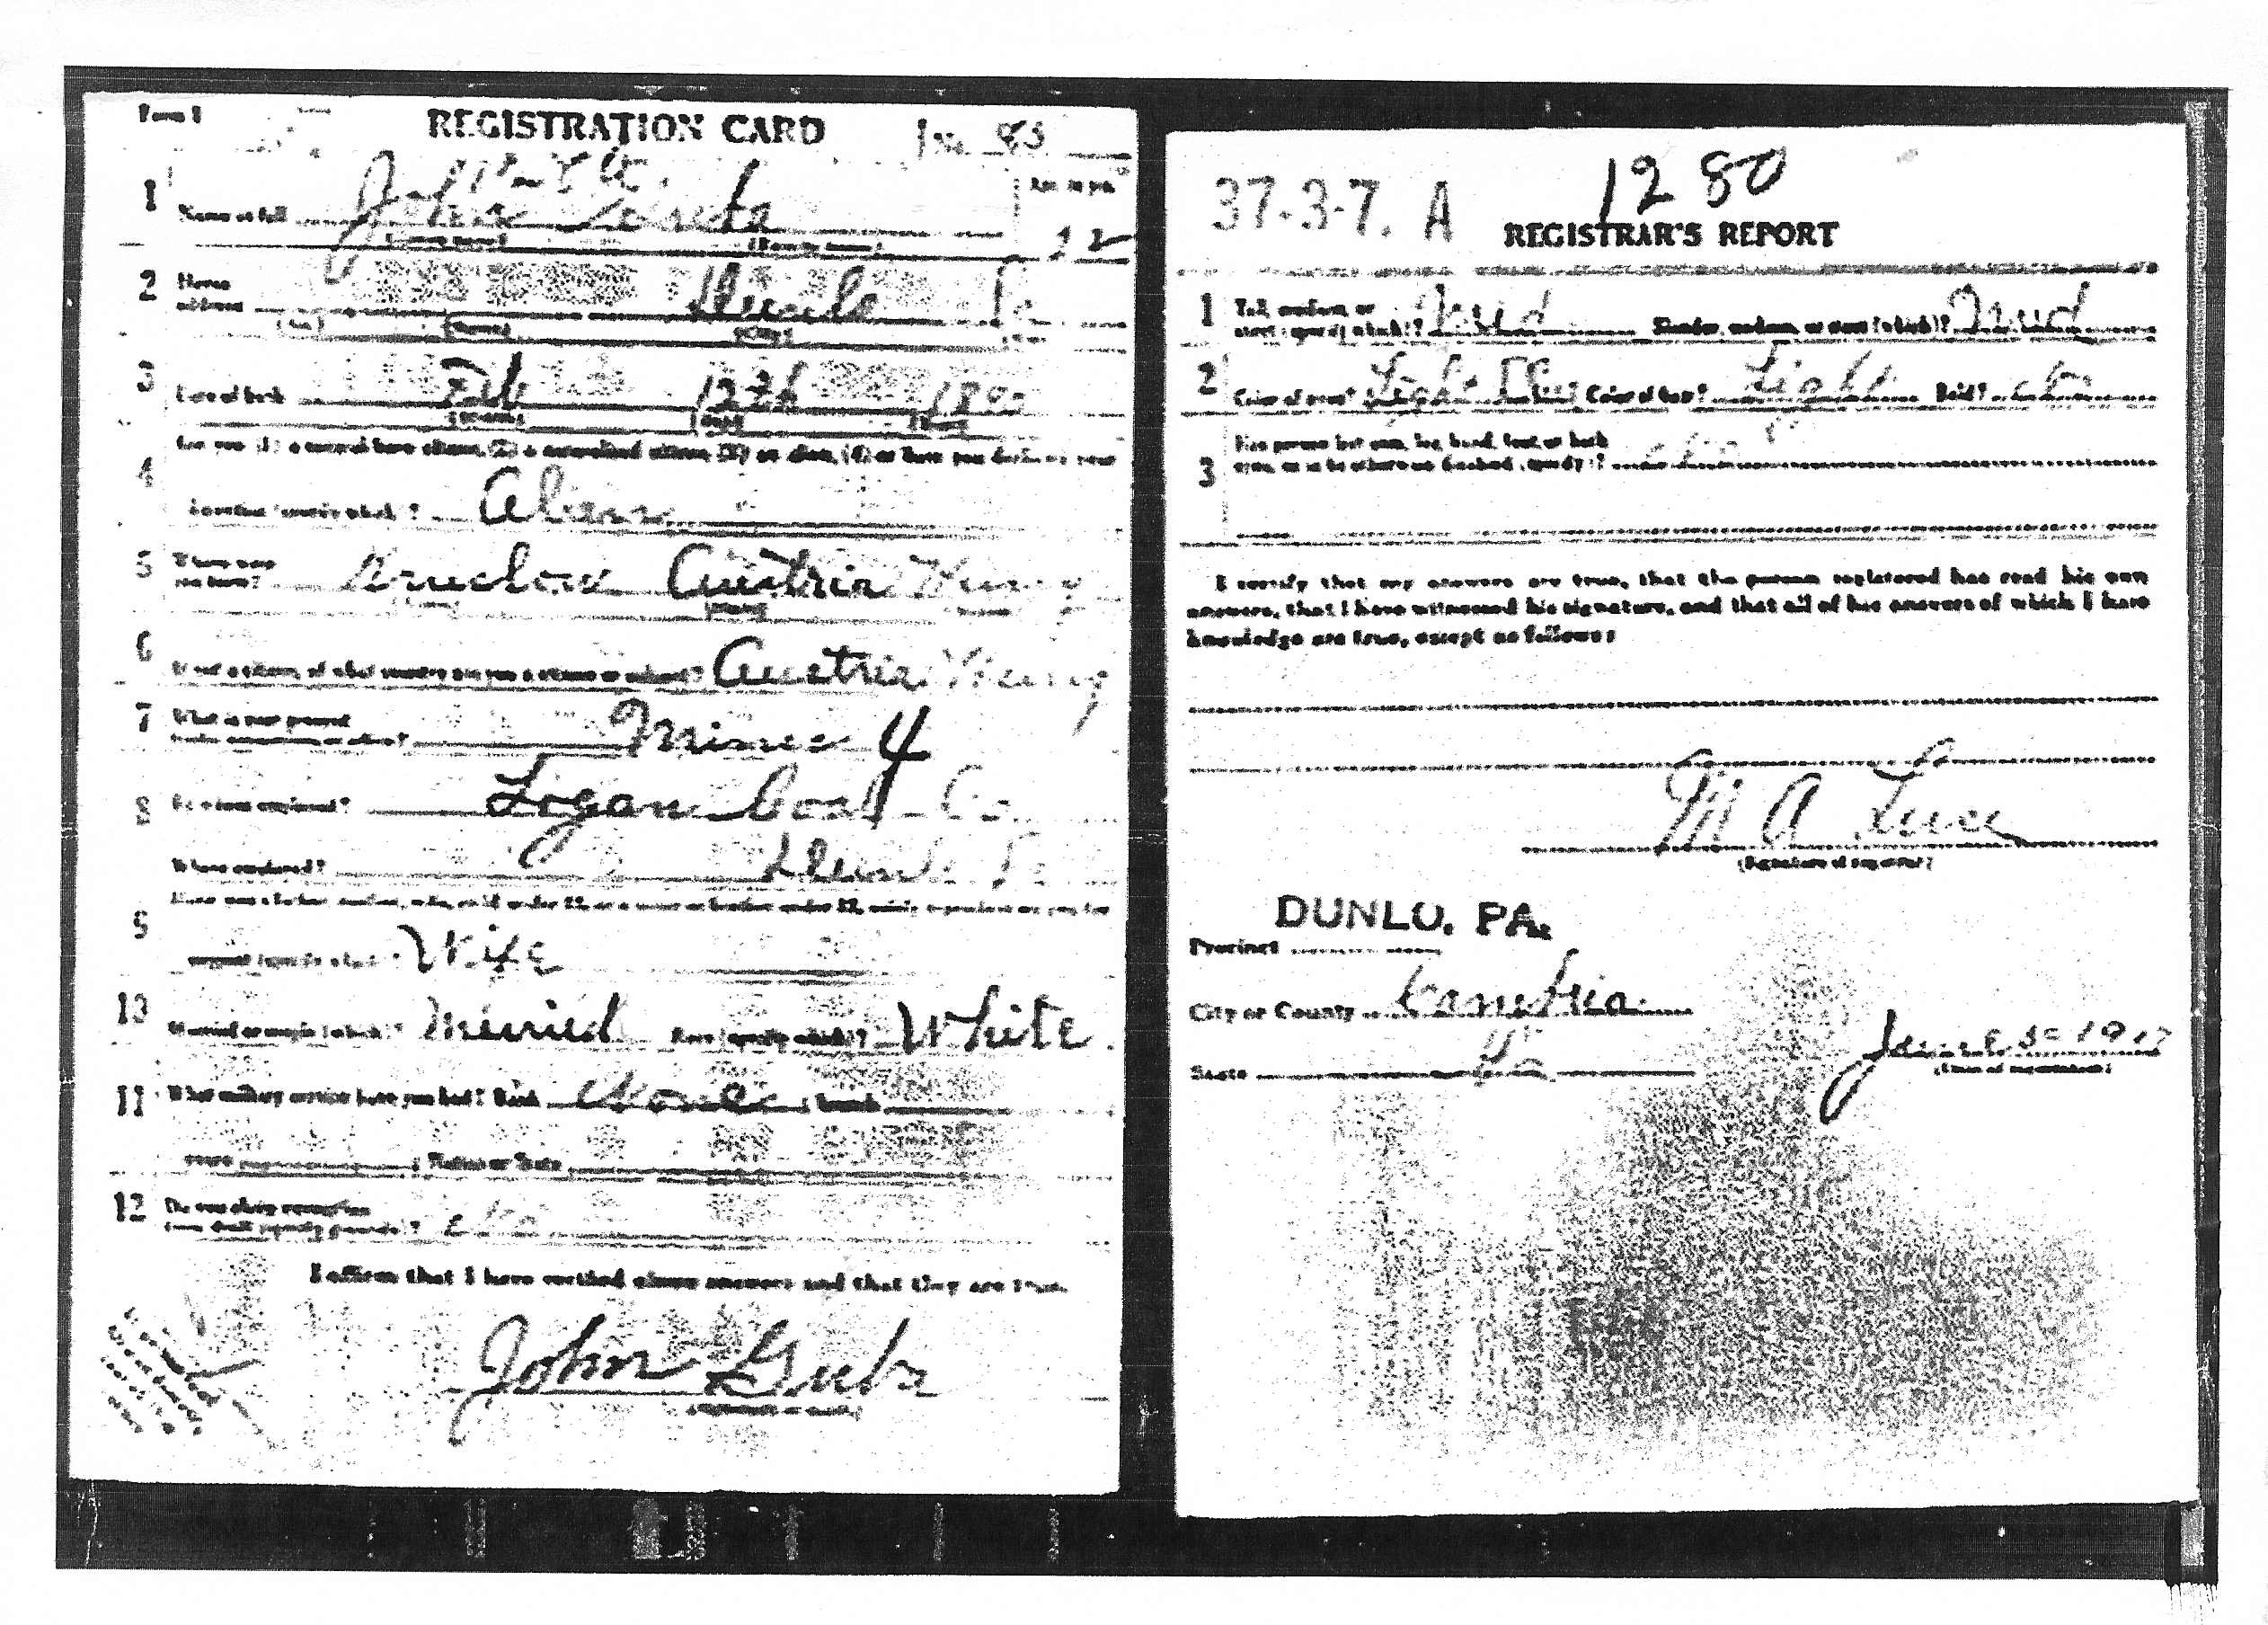 Form 1
REGISTRATION CARD No. 93
1 Name in full John
Age in yrs
(Family name)
2 Home address Dunlo Pa
(No.) (Street) (City)
3 Date of birth Feb 12th
(Month) (Day) (Year)
4 Are you (1) a natural born citizen, (2) a naturalized citizen, (3) an alien, (4) or have you declared your
intention (specify which)? Alien
5 Where were you born? Austria Hung
6 If not a citizen, of what country are you a citizen or subject? Austria Hung
7 What is your present trade, occupation or office? Miner 4
8 By whom employed? Logan Coal Co
Where employed? Dunlo Pa
9 Have you a father, mother, wife, child under 12, or a sister or brother under 12, solely dependent on you for
support (specify which)? Wife
10 Married or single (which)? Married Race (specify which)? White
11 What military service have you had? Rank None ; branch
years ; Nation or State
12 Do you claim exemption from draft (specify grounds)? No
I affirm that I have verified above answers and that they are true.
John
(Signature or mark)
37-3-7. A 1280
REGISTRAR'S REPORT
1 Tall, medium, or short (specify which)? Med Slender, medium, or stout (which)? Med
2 Color of eyes? Light Blue Color of hair? Light Bald? No
3 Has person lost arm, leg, hand, foot, or both
eyes, or is he otherwise disabled (specify)? No
I certify that my answers are true, that the person registered has read his own
answers, that I have witnessed his signature, and that all of his answers of which I have
knowledge are true, except as follows:
M A Luce
(Signature of registrar)
DUNLO, PA.
Precinct
City or County Cambria
State Pa
June 5 1917
(Date of registration)